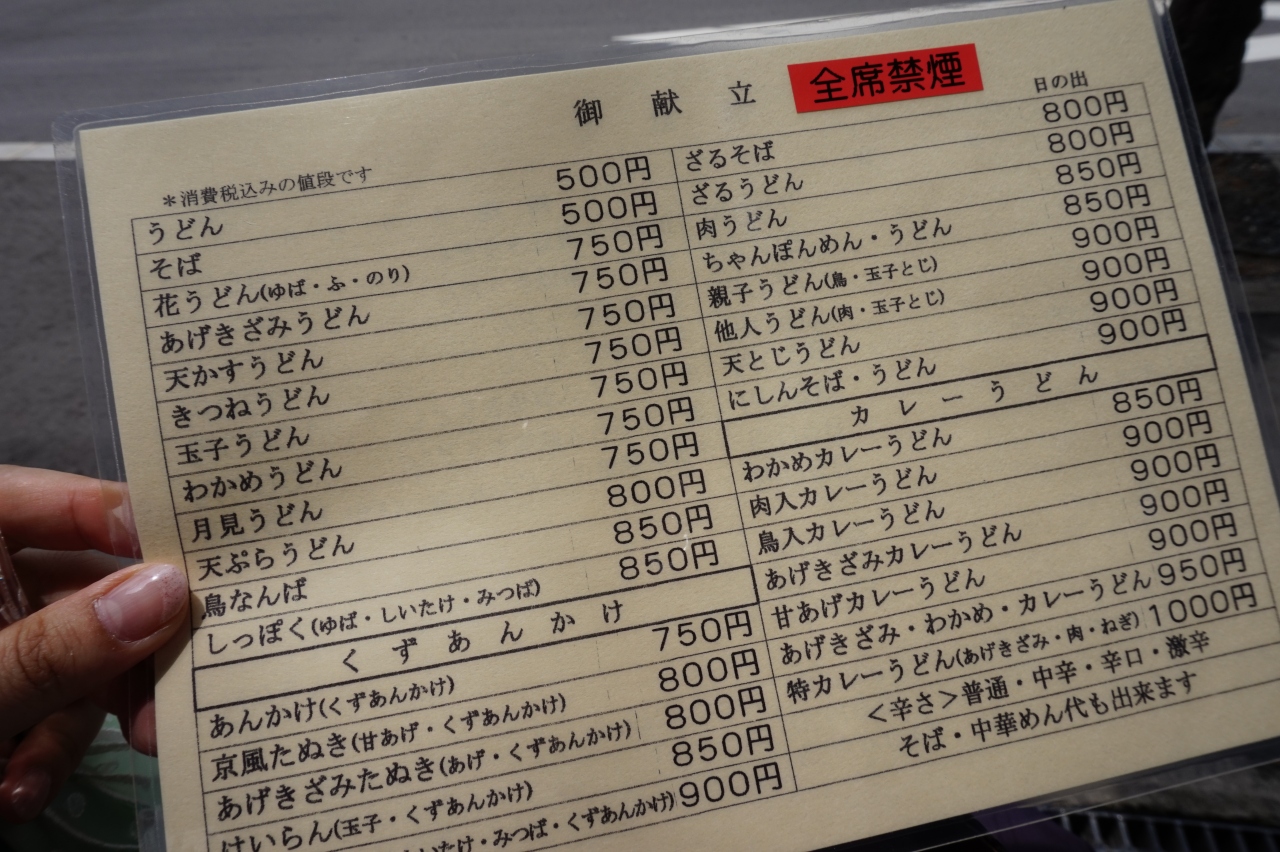 御献立
全席禁煙
日の出
*消費税込みの値段です
うどん 500円
そば 500円
花うどん(ゆば・ふ・のり) 750円
あげきざみうどん 750円
天かすうどん 750円
きつねうどん 750円
玉子うどん 750円
わかめうどん 750円
月見うどん 750円
天ぷらうどん 800円
鳥なんば 850円
しっぽく(ゆば・しいたけ・みつば) 850円
くずあんかけ
あんかけ(くずあんかけ) 750円
京風たぬき(甘あげ・くずあんかけ) 800円
あげきざみたぬき(あげ・くずあんかけ) 800円
けいらん(玉子・くずあんかけ) 850円
いたけ・みつば・くずあんかけ) 900円
ざるそば 800円
ざるうどん 800円
肉うどん 850円
ちゃんぽんめん・うどん 850円
親子うどん(鳥・玉子とじ) 900円
他人うどん(肉・玉子とじ) 900円
天とじうどん 900円
にしんそば・うどん 900円
カレーうどん
わかめカレーうどん 850円
肉入カレーうどん 900円
鳥入カレーうどん 900円
あげきざみカレーうどん 900円
甘あげカレーうどん 900円
あげきざみ・わかめ・カレーうどん 950円
特カレーうどん(あげきざみ・肉・ねぎ) 1000円
<辛さ>普通・中辛・辛口・激辛
そば・中華めん代も出来ます